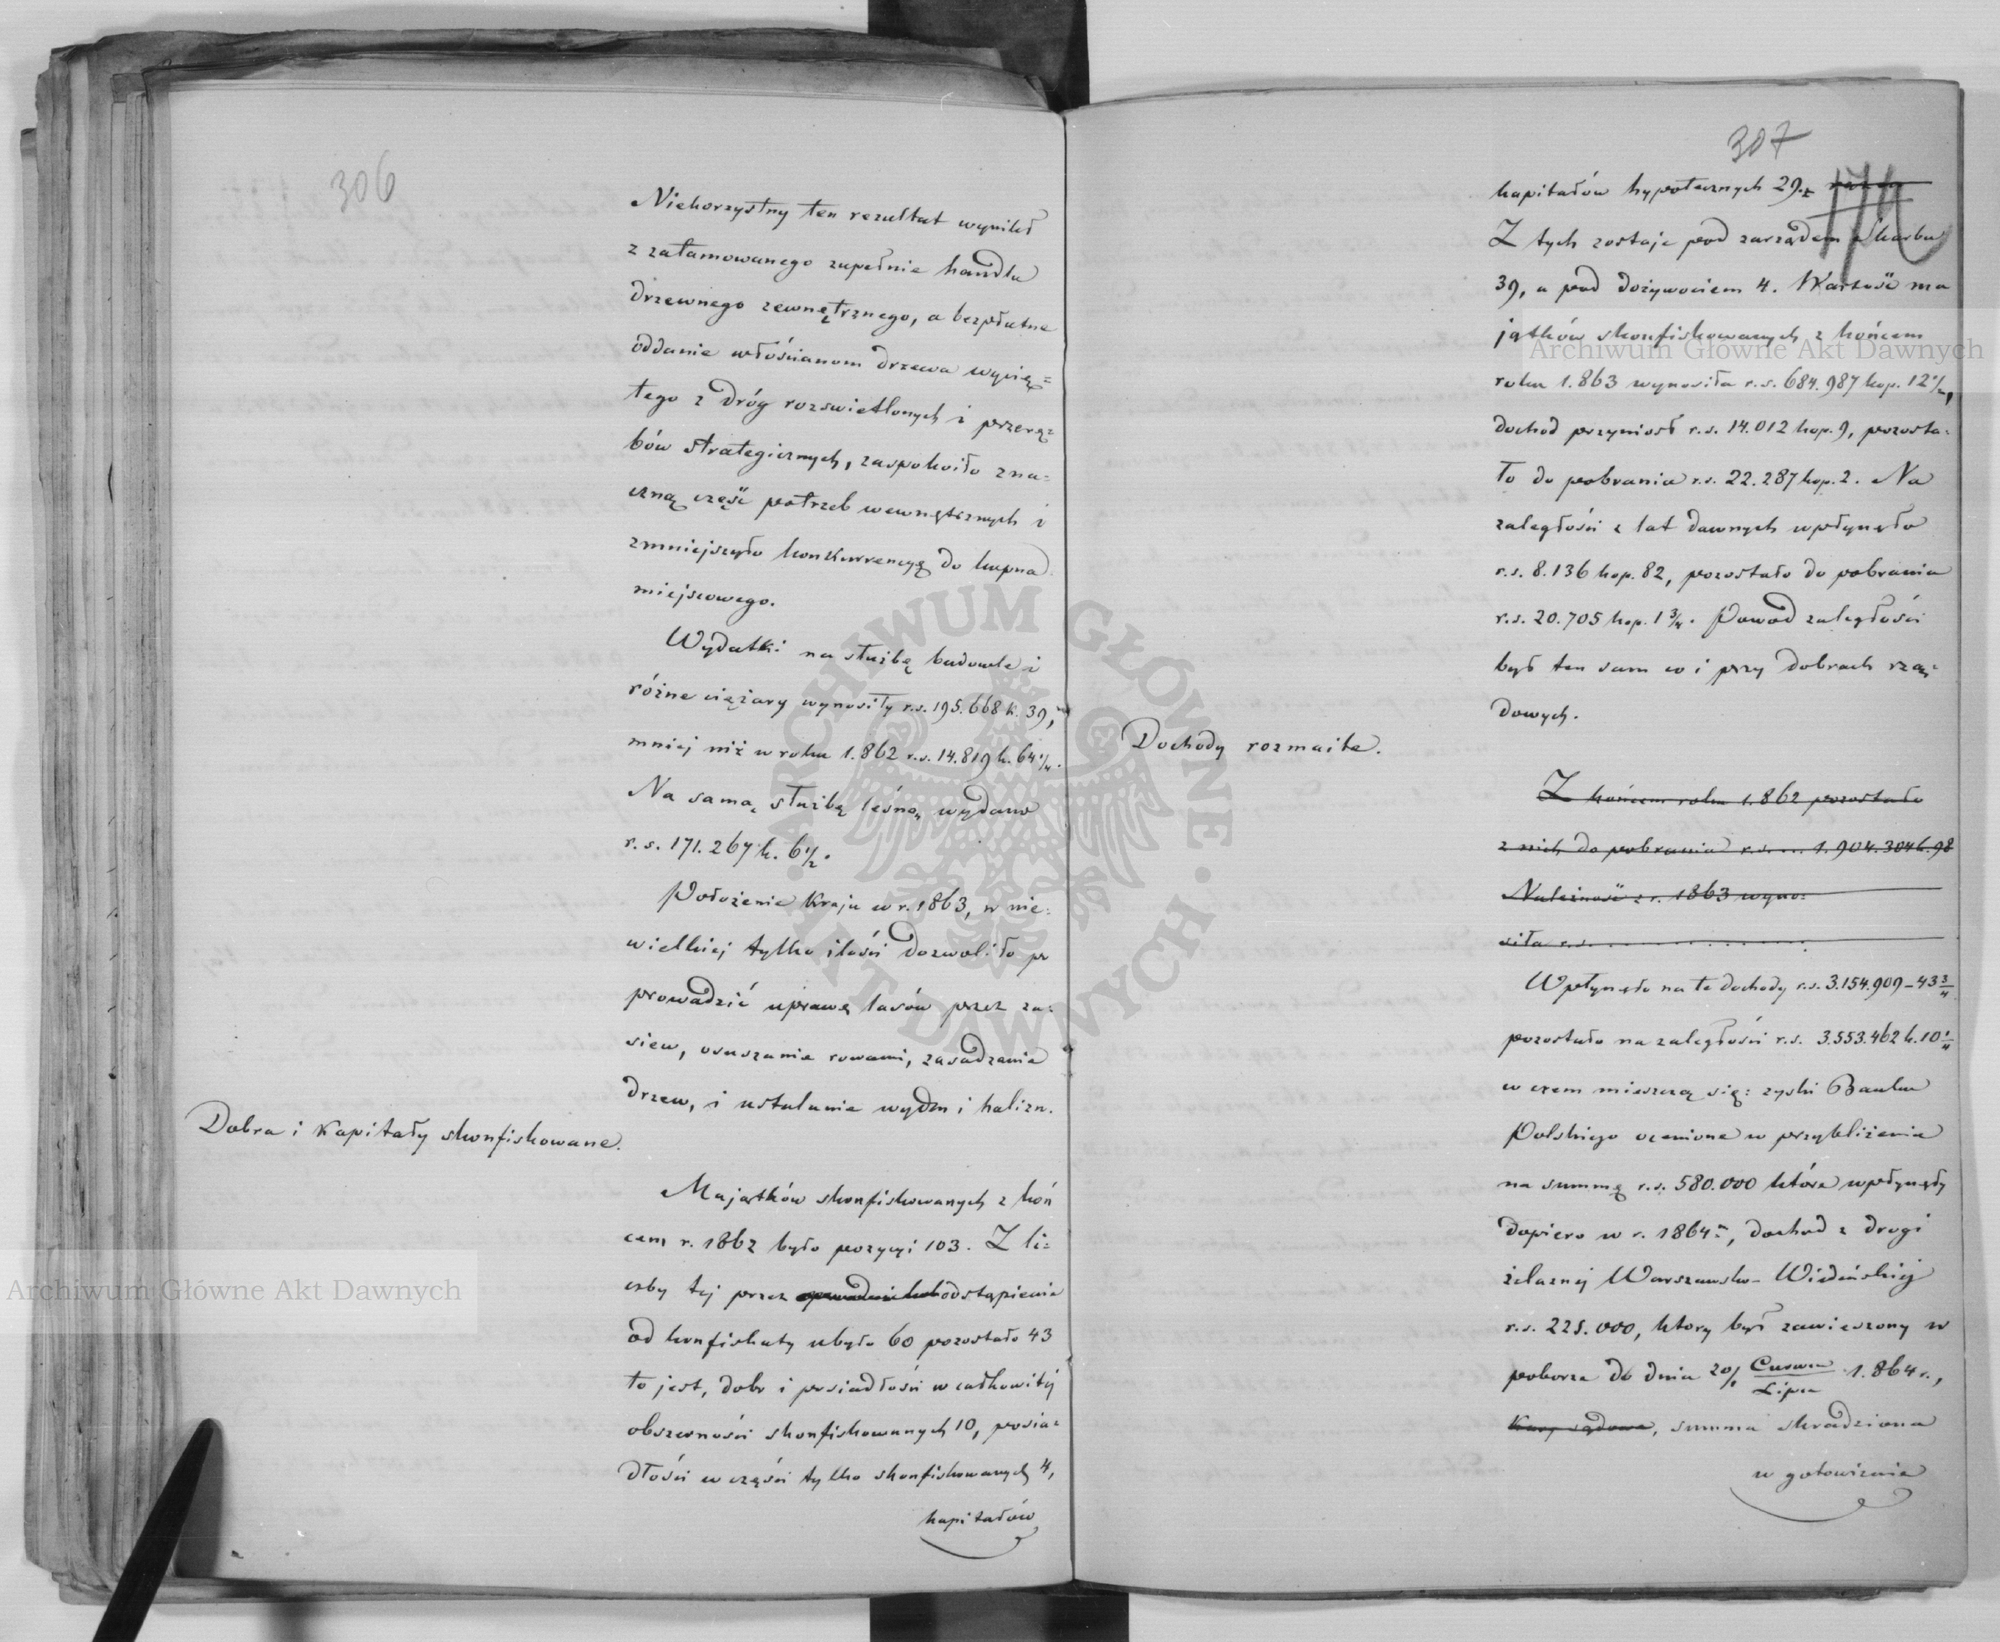 306
Niekorzystny ten rezultat wynikł
z zatamowanego zupełnie handlu
drzewnego zewnętrznego, a bezpłatne
oddanie włościanom drzewa wycię=
tego z dróg rozswietlonych i przerę=
bów strategicznych, zaspokoiło zna=
czną część potrzeb wewnętrznych i
zmniejszyło konkurrencyą do kupna
miejscowego.
Wydatki na służbę budowle i
różne ciężary wynosiły r.s. 195.668 k. 39,
mniej niż w roku 1.862 r.s. 14.819 k. 64 1/4.
Na samą służbę leśną wydano
r.s. 171.267 k. 6 1/2.
Położenie Kraju w r. 1863, w nie=
wielkiej tylko ilości dozwoliło
prowadzić uprawę lasów przez za=
siew, osuszanie rowami, zasadzanie
drzew, i ustalanie wydm i halizn.
Dobra i Kapitały skonfiskowane.
Majątków skonfiskowanych z koń
cem r. 1862 było pozycyi 103. Z li=
czby tej przez odstąpienie
od konfiskaty ubyło 60 pozostało 43
to jest, dobr i posiadłości w całkowitéj
obszerności skonfiskowanych 10, posia=
dłości w części tylko skonfiskowanych 4,
kapitałów
307
174
kapitałów hypotecznych 29.
Z tych zostaje pod zarządem Skarbu
39, a pod dożywociem 4. Wartość ma
jątków skonfiskowanych z końcem
roku 1.863 wynosiła r.s. 684.987 kop. 12 1/2,
dochod przyniosł r.s. 14.012 kop. 9, pozosta=
ło do pobrania r.s. 22.287 kop. 2. Na
zaległości z lat dawnych wpłynęło
r.s. 8.136 kop. 82, pozostało do pobrania
r.s. 20.705 kop. 1 3/4. Powod zaległości
był ten sam co i przy dobrach rzą=
dowych.
Dochody rozmaite.
Z końcem roku 1.862 pozostało
z nich do pobrania r.s.... 1.904.304 k. 98
Należność z r. 1863 wyno=
siła r.s. . . . . . . . . . . .
Wpłynęło na te dochody r.s. 3.154.909 - 43 3/4
pozostało na zaległości r.s. 3.553.462 k. 10 1/4
w czem mieszczą się: zyski Banku
Polskiego ocenione w przybliżeniu
na summę r.s. 580.000 które wpłynęły
dopiero w r. 1864m, dochod z drogi
żelaznéj Warszawsko-Wiedeńskiéj
r.s. 225.000, ktory był zawieszony w
poborze do dnia 20/ Czerwca/Lipca 1.864 r.,
Kary sądowe, summa skradziona
w gotowiznie
Archiwum Główne Akt Dawnych
Archiwum Główne Akt Dawnych
ARCHIWUM GŁÓWNE AKT DAWNYCH